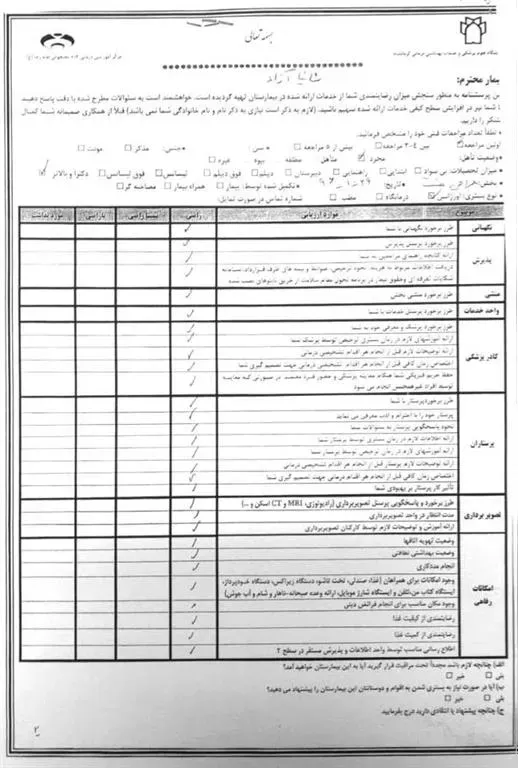 بسمه تعالی
دانشگاه علوم پزشکی و خدمات بهداشتی درمانی کرمانشاه
بیمار محترم:
این پرسشنامه به منظور سنجش میزان رضایتمندی شما از خدمات ارائه شده در بیمارستان تهیه گردیده است. خواهشمند است به سئوالات مطرح شده با دقت پاسخ دهید
تا شما نیز در افزایش سطح کیفی خدمات ارائه شده سهیم باشید. (لازم به ذکر است نیازی به ذکر نام و نام خانوادگی شما نمی باشد) قبلاً از همکاری صمیمانه شما کمال
تشکر را داریم.
لطفاً تعداد مراجعات قبلی خود را مشخص فرمائید.
اولین مراجعه بین ۴-۲ مراجعه بیش از ۵ مراجعه سن: جنس: مذکر مونث
وضعیت تأهل: مجرد متأهل مطلقه بیوه غیره
میزان تحصیلات: بی سواد ابتدایی راهنمایی دبیرستان دیپلم فوق دیپلم لیسانس فوق لیسانس دکترا و بالاتر
بخش: تاریخ: تکمیل شده توسط: بیمار همراه بیمار مصاحبه گر
نوع بستری: اورژانس درمانگاه مطب شماره تماس در صورت تمایل:
موضوع موارد ارزیابی راضی نسبتاً راضی ناراضی مورد نداشت
نگهبانی طرز برخورد نگهبانی با شما
پذیرش طرز برخورد پرسنل پذیرش
ارائه کتابچه راهنمای مراجعین به شما
منشی طرز برخورد منشی بخش
واحد خدمات طرز برخورد پرسنل خدمات با شما
کادر پزشکی طرز برخورد پزشک و معرفی خود به شما
ارائه آموزشهای لازم در زمان بستری ترخیص توسط پزشک شما
ارائه توضیحات لازم قبل از انجام هر اقدام تشخیصی درمانی
اختصاص زمان کافی قبل از انجام هر اقدام تشخیصی درمانی جهت تصمیم گیری شما
حفظ حریم فیزیکی شما هنگام معاینه پزشکی و حضور فرد معتمد در صورتی که معاینه
توسط افراد غیرهمجنس انجام می شود
پرستاران طرز برخورد پرستار با شما
پرستار خود را با احترام و ادب معرفی می نماید
نحوه پاسخگویی پرستار به سئوالات شما
ارائه اطلاعات لازم در زمان بستری توسط پرستار شما
ارائه آموزشهای لازم در زمان ترخیص توسط پرستار شما
ارائه توضیحات لازم پرستار قبل از انجام هر اقدام تشخیصی درمانی
اختصاص زمان کافی قبل از انجام هر اقدام تشخیصی درمانی جهت تصمیم گیری شما
تأثیر کار پرستار بر بهبودی شما
تصویر برداری طرز برخورد و پاسخگویی پرسنل تصویربرداری (رادیولوژی، MRI و CT اسکن و ...)
مدت انتظار در واحد تصویربرداری
ارائه آموزش و توضیحات لازم توسط کارکنان تصویربرداری
امکانات رفاهی وضعیت تهویه اتاقها
وضعیت بهداشتی نظافتی
انجام مددکاری
وجود امکانات برای همراهان (غذا، صندلی، تخت تاشو، دستگاه زیراکس، دستگاه خودپرداز،
ایستگاه کتاب من، تلفن و ایستگاه شارژ موبایل، ارائه وعده صبحانه-ناهار و شام و آب جوش)
وجود مکان مناسب برای انجام فرائض دینی
رضایتمندی از کیفیت غذا
رضایتمندی از کمیت غذا
اطلاع رسانی مناسب توسط واحد اطلاعات و پذیرش مستقر در سطح ۲
الف) چنانچه لازم باشد مجدداً تحت مراقبت قرار گیرید آیا به این بیمارستان خواهید آمد؟
بلی خیر
ب) آیا در صورت نیاز به بستری شدن به اقوام و دوستانتان این بیمارستان را پیشنهاد می دهید؟
بلی خیر
ج) چنانچه پیشنهاد یا انتقادی دارید درج بفرمایید